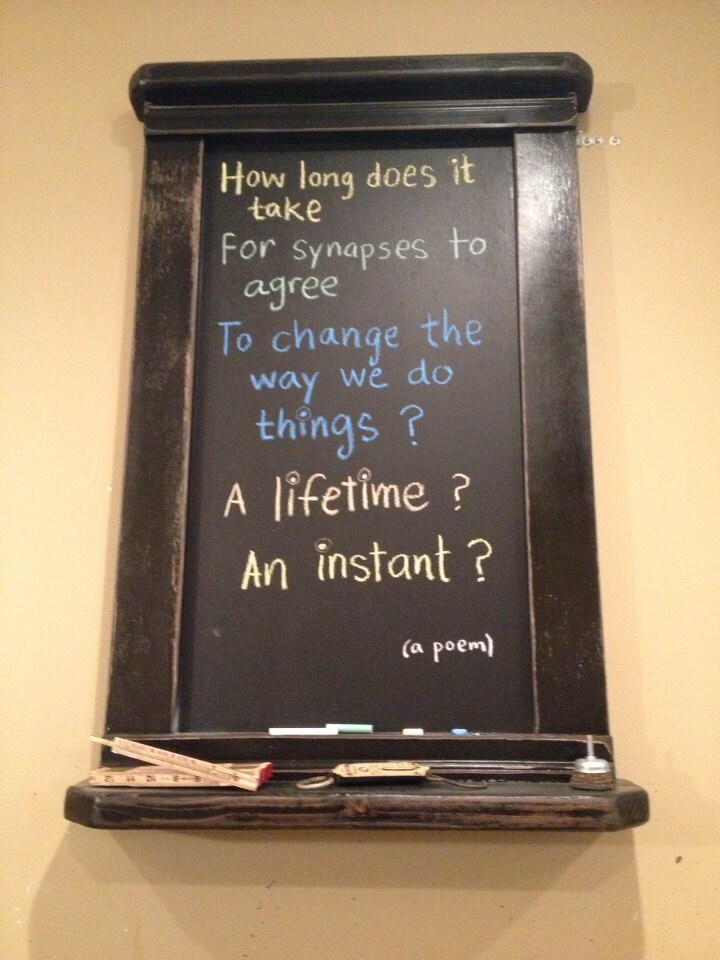 How long does it
take
For synapses to
agree
To change the
way we do
things ?
A lifetime ?
An instant ?
(a poem)